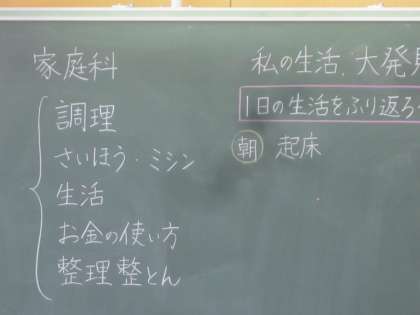 家庭科
調理
さいほう・ミシン
生活
お金の使い方
整理整とん
私の生活、大発見
1日の生活をふり返ろう
朝 起床